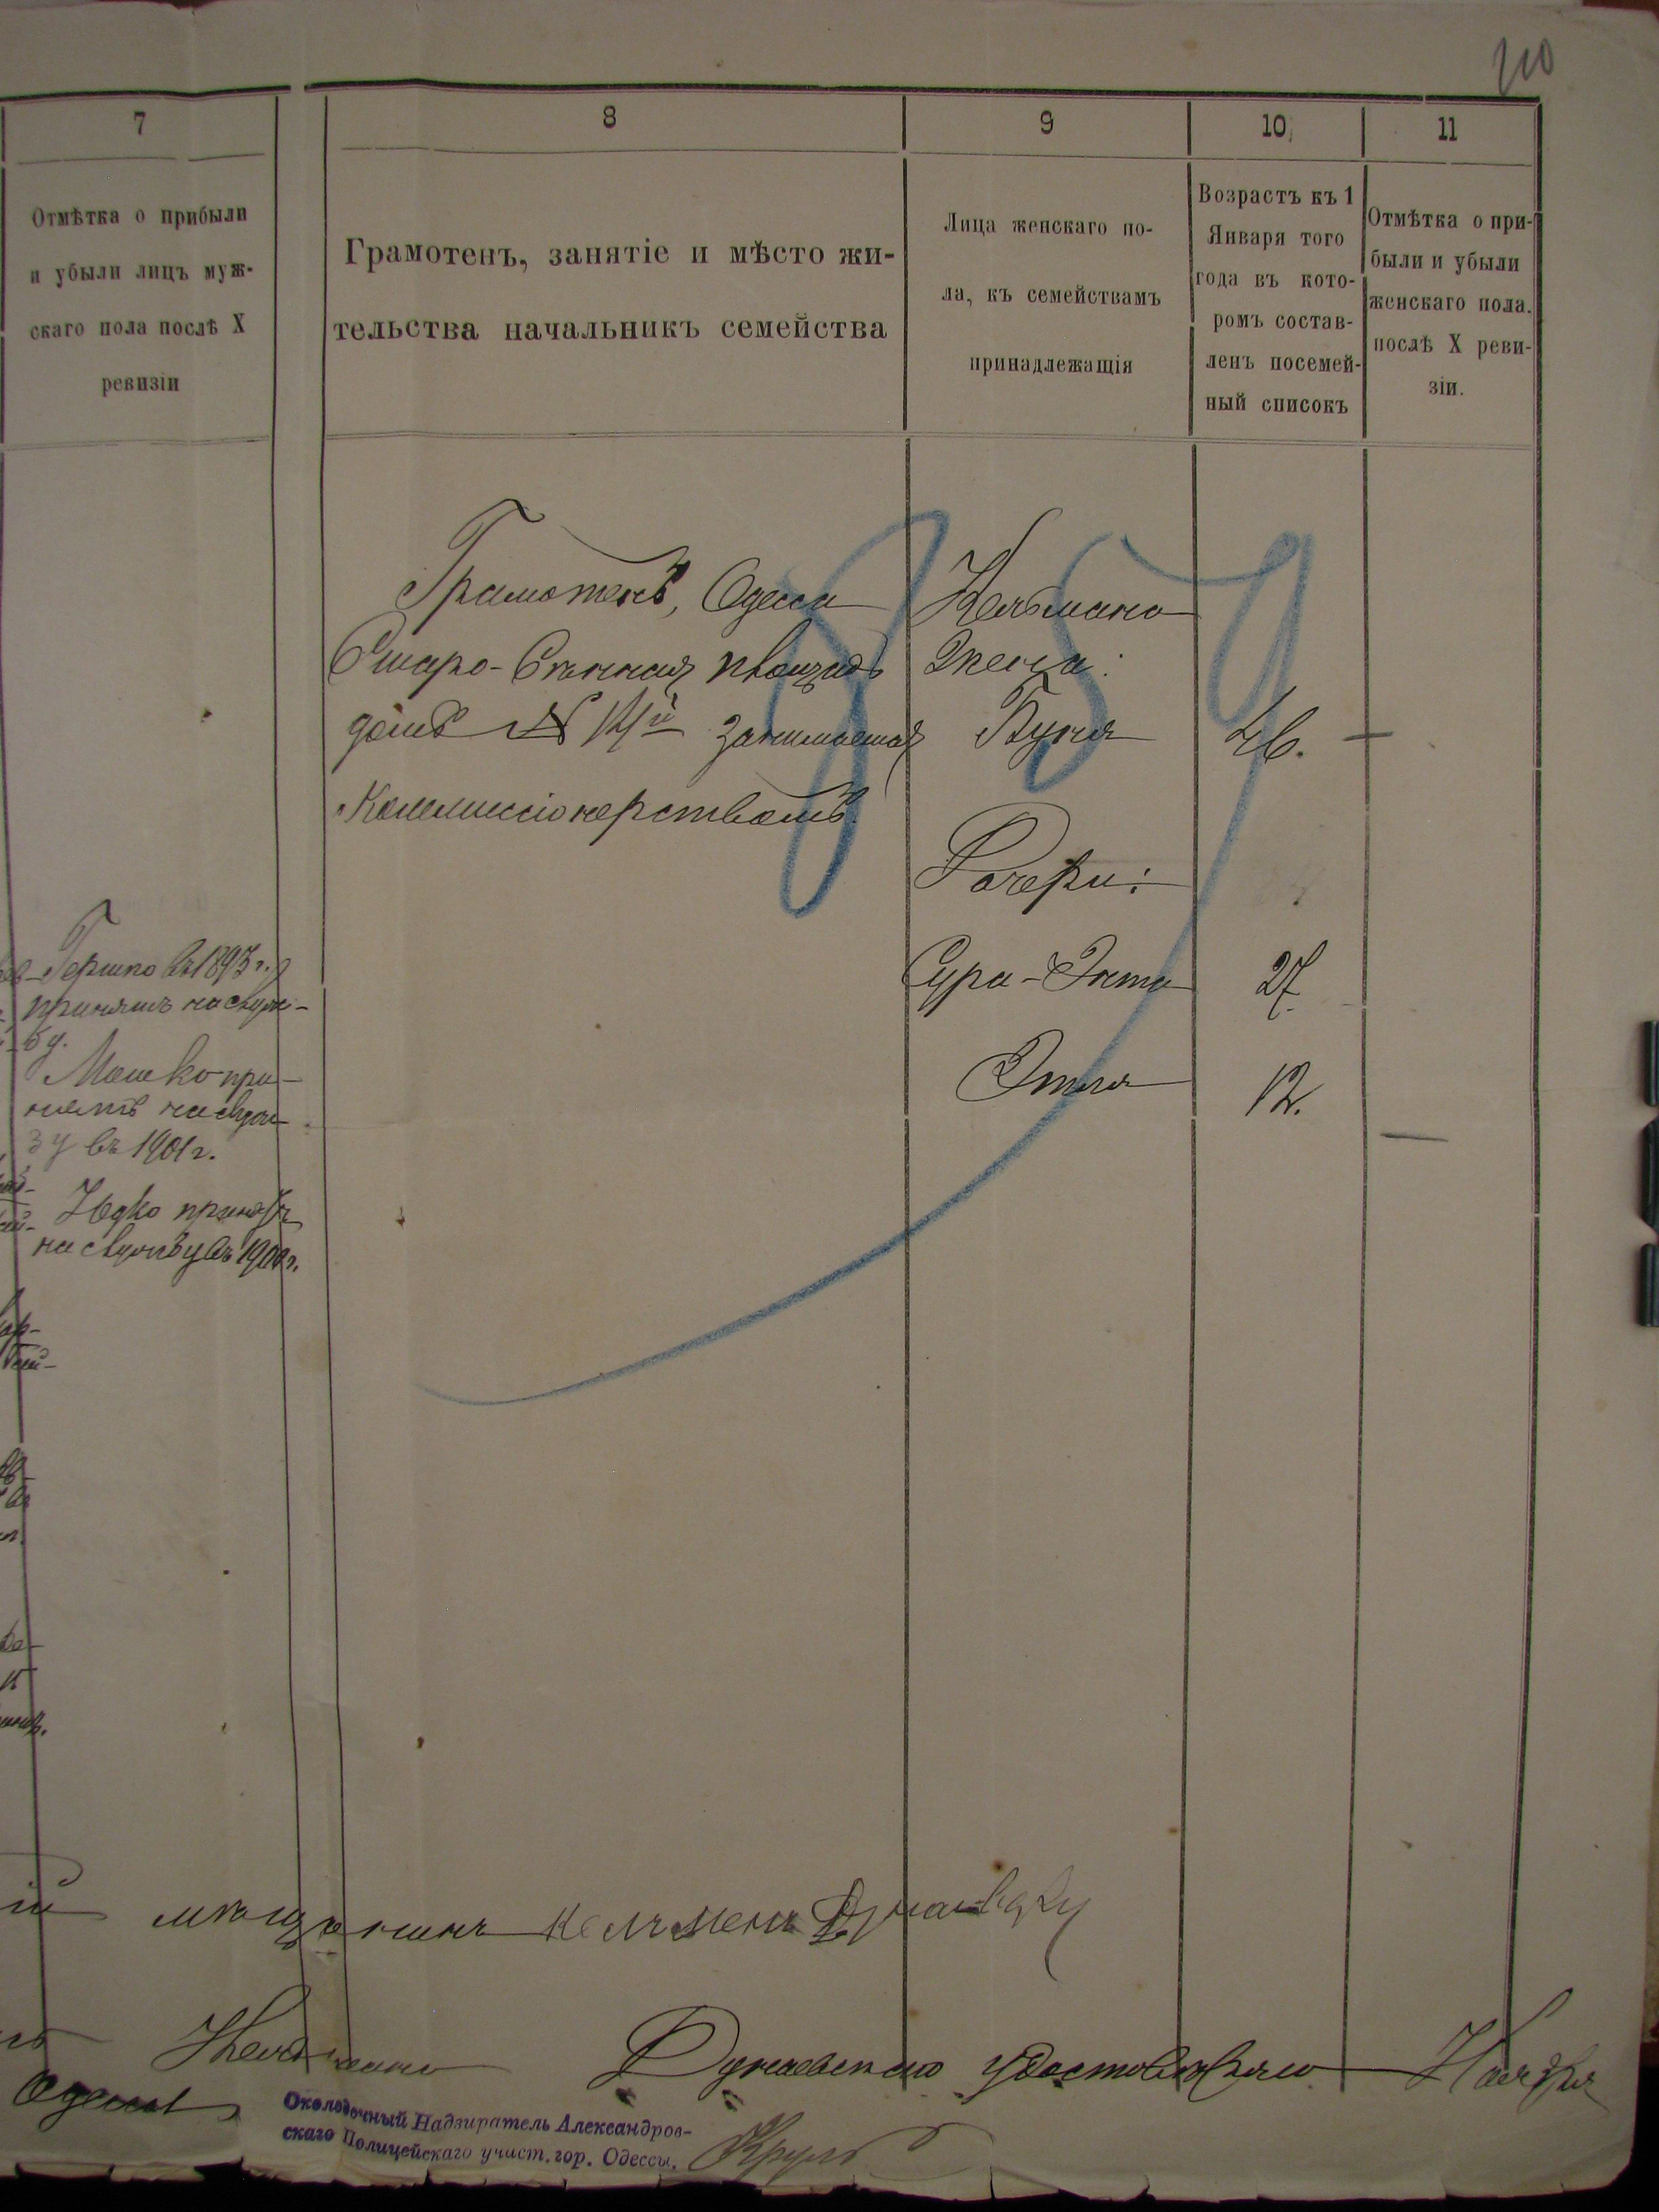 210
7
8
9
10
11
Отмѣтка о прибыли
и убыли лицъ муж-
скаго пола послѣ X
ревизіи
Грамотенъ, занятіе и мѣсто жи-
тельства начальникъ семейства
Лица женскаго по-
ла, къ семействамъ
принадлежащія
Возрастъ къ 1
Января того
года въ кото-
ромъ состав-
ленъ посемей-
ный списокъ
Отмѣтка о при-
были и убыли
женскаго пола.
послѣ X реви-
зіи.
Гершко въ 1893 г.
принятъ на служ-
бу.
Мошко при-
нятъ на служ-
бу въ 1901 г.
Іодко принятъ
на службу въ 1900 г.
Грамотенъ, Одесса
Старо-Сѣнная площадь
домъ № 14й занимается
Коммиссіонерствомъ.
Кельмана
Жена:
Буня
46.
Дочери:
Сура-Энта
27
Этля
12.
мѣщанинъ Келъменъ
Кельмана Дунаевскаго удостовѣряю Ноября
Одесса
Околодочный Надзиратель Александров-
скаго Полицейскаго участ. гор. Одессы.